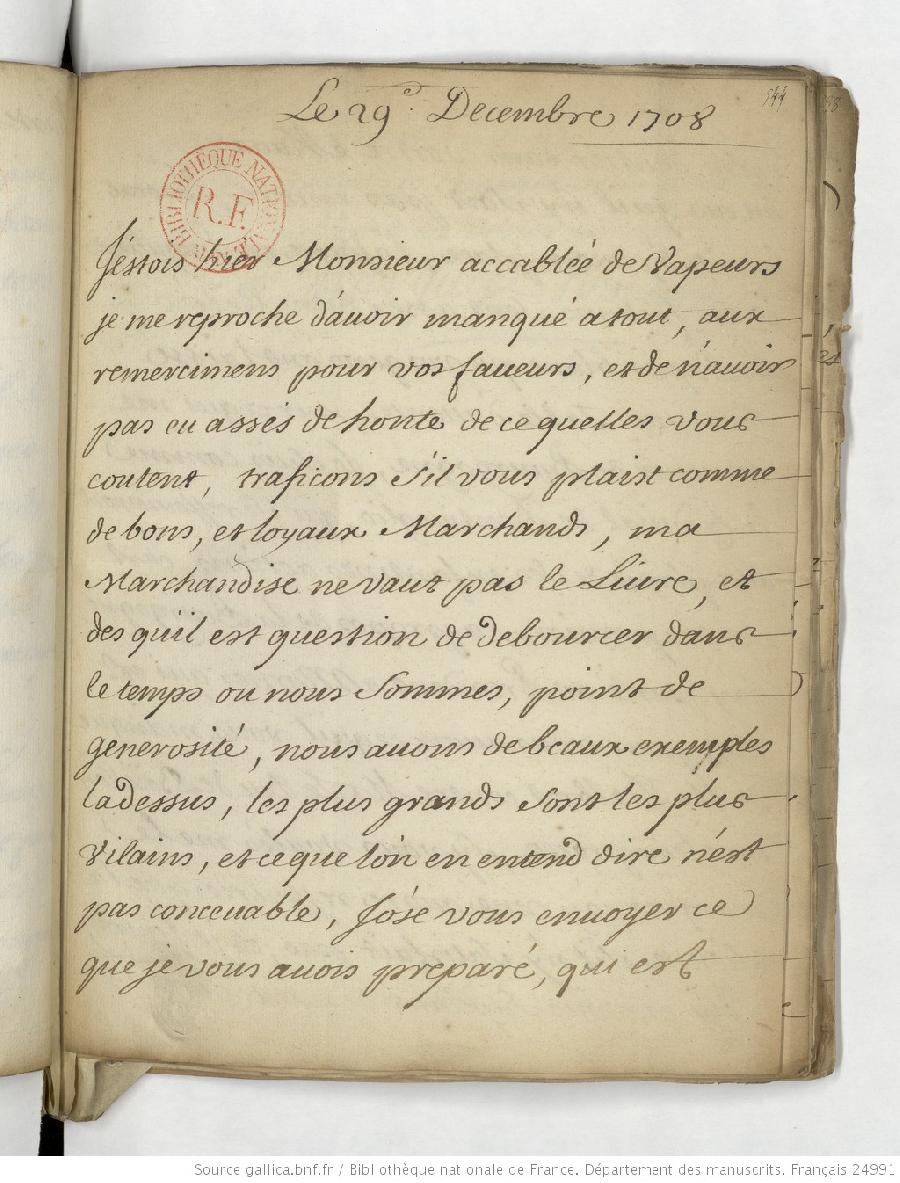 544
Le 29e. Decembre 1708
BIBLIOTHÈQUE NATIONALE
R.F.
J'éstois hier Monsieur accablée de Vapeurs
je me reproche d'auoir manqué a tout, aux
remercimens pour vos faueurs, et de n'auoir
pas eu assés de honte de ce quelles vous
coutent, traficons s'il vous plaist comme
de bons, et loyaux Marchands, ma
Marchandise ne vaut pas le Liure, et
des qu'il est question de debourcer dans
le temps ou nous sommes, point de
generosité, nous auons de beaux exemples
la dessus, les plus grands sont les plus
vilains, et ce que l'on en entend dire n'est
pas conceuable, J'ose vous enuoyer ce
que je vous auois preparé, qui est
Source gallica.bnf.fr / Bibliothèque nationale de France. Département des manuscrits. Français 24991